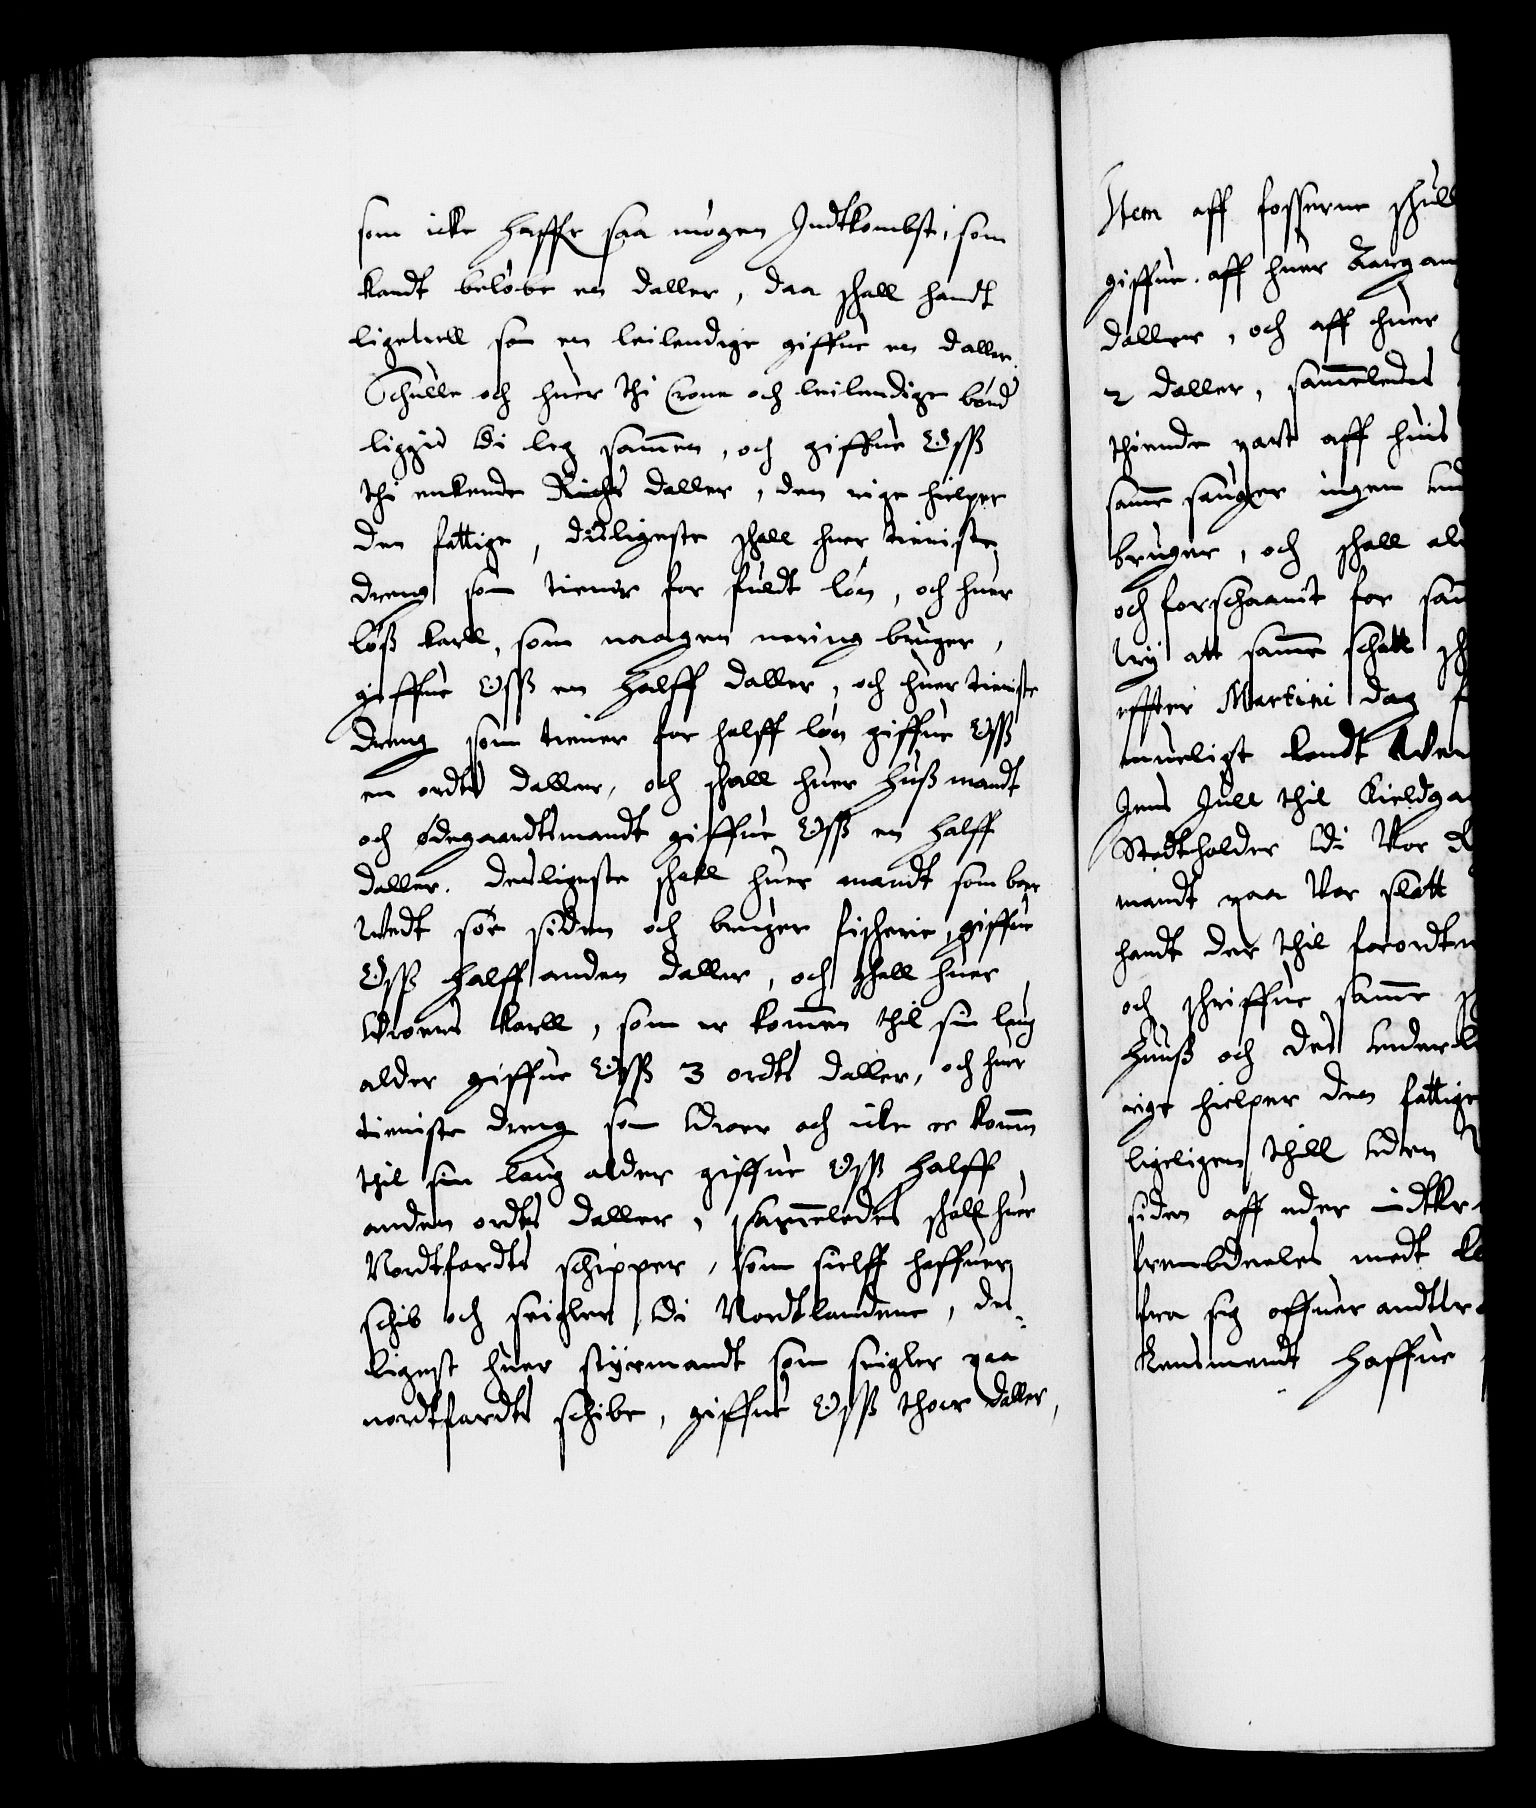 som icke haffr saa mogen Indtkombst, som
kandt beløbe en daller, daa schall handt
ligeuell som en leilendige giffue en daller.
Schulle och huer thi Crone och leilendige bønd
liggis Vdi leg sammen, och giffue Oss
thi enkende Richs daller, den rige hielper
den fattige, disligeste schall huer tieniste
dreng som tiener for fuldt løn, och huer
løß karll, som naagen nering bruger,
giffue Oss en halff daller, och huer tieniste
dreng som tiener for halff løn giffue Oss
en ordts daller, och schall huer hußmandt
och ødegaardtsmandt giffue Oss en halff
daller. desligeste schall huer mandt som boer
Vedt søe siden och bruger fischerie, giffue
Oss halff anden daller, och schall huer
Vdroers karll, som er kommen thil sin laug
alder giffue Oss 3 ordts daller, och huer
tieniste dreng som Vdroer och icke er kommen
thil sin laug alder giffue Oss halff
anden ordts daller, sammeledes schall huer
Nordtfardts schipper, som sielff haffuer
schib och seigler Vdi Nordtlandene, des-
ligest huer styrmandt som seigler paa
nordtfardts schibe, giffue Oss thoer daller,
Item aff fosserne schull
giffue aff huer
daller, och aff huer
2 daller, sammeledes
thiende part aff huis
samme sauger ingen
bruger, och schall
och forschaanit for
att samme schatt
effter Martini dag
mueligt kandt
Jens Juell thil Kieldga
Stadtholder Vdi Vor
mandt paa Vor slott
handt der thil forordtn
och schriffue samme
Huuß och des Vnderl
rige hielper den fattige
ligeligen thill Vden
siden aff eder indtkr
frembdeeles medt
fra sig offuer andtu
Rensmandt haffue